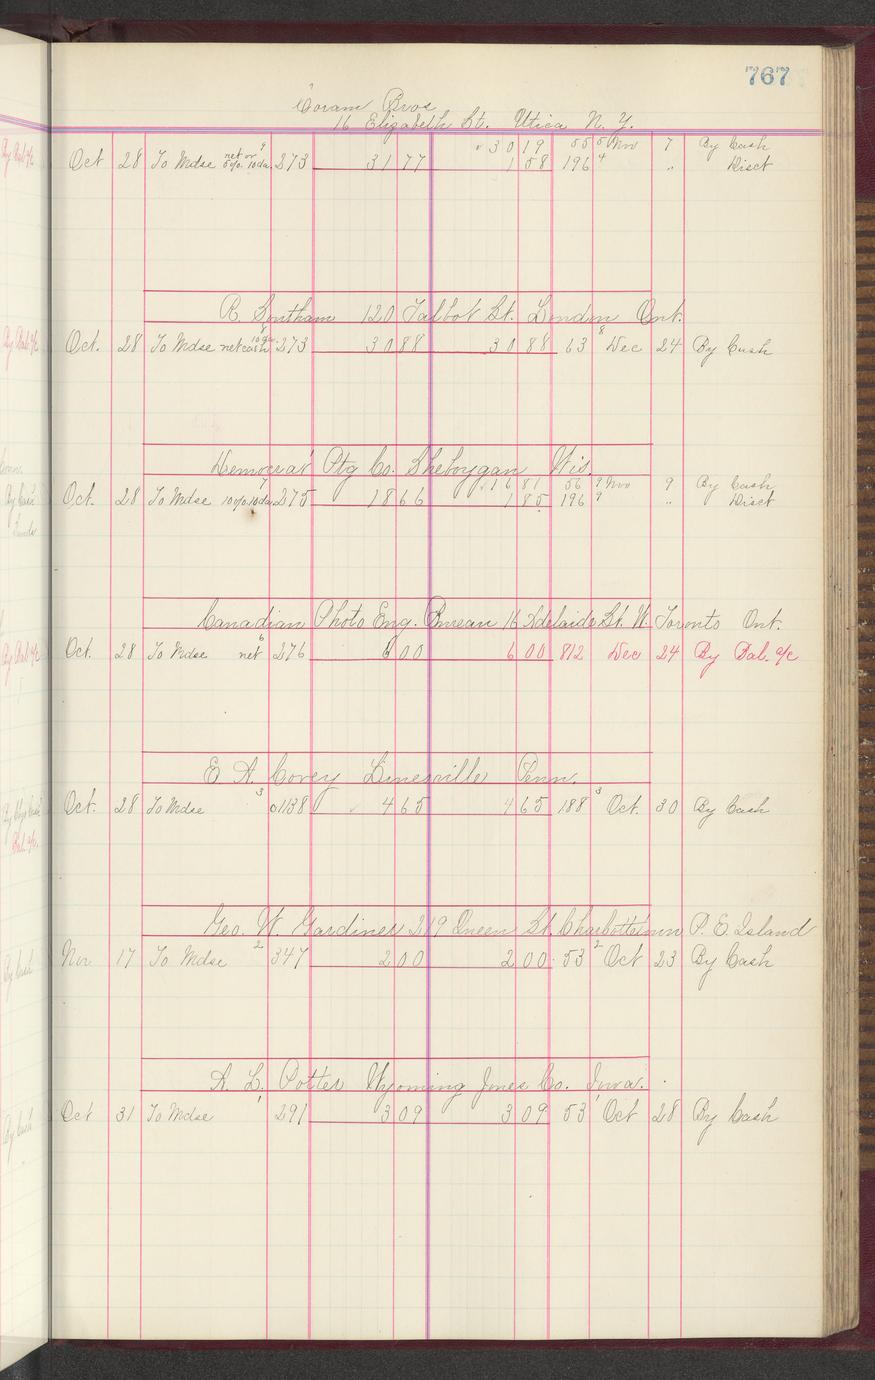 767
Coram Bros
16 Elizabeth St. Utica N. Y.
9 30 19 55 5 Nov 7 By Cash
Oct 28 To Mdse net or 5% 10da. 273 31 77 1 58 196 4 " Disct
R. Southam 120 Talbot St. London Ont.
Oct. 28 To Mdse net cash 10da. 8 273 30 88 30 88 63 8 Dec 24 By Cash
Democrat Ptg Co. Sheboygan Wis.
7 16 81 56 9 Nov 9 By Cash
Oct. 28 To Mdse 10% 10da 275 18 66 1 85 196 9 " Disct
Canadian Photo Eng. Bureau 16 Adelaide St. W. Toronto Ont.
Oct. 28 To Mdse net 6 276 6 00 6 00 812 Dec 24 By Bal. a/c
E. A. Covey Linesville Penn.
Oct. 28 To Mdse 3 1138 4 65 4 65 188 3 Oct. 30 By Cash
Geo. W. Gardiner 219 Queen St. Charlottetown P. E Island
Nov 17 To Mdse 2 347 2 00 2 00 53 2 Oct 23 By Cash
A. L. Potter Wyoming Jones Co. Iowa.
Oct 31 To Mdse 1 291 3 09 3 09 53 1 Oct 28 By Cash
By Bal a/c
By Bal a/c
By Cash
By Bal a/c
Bal. a/c.
By Cash
By Cash